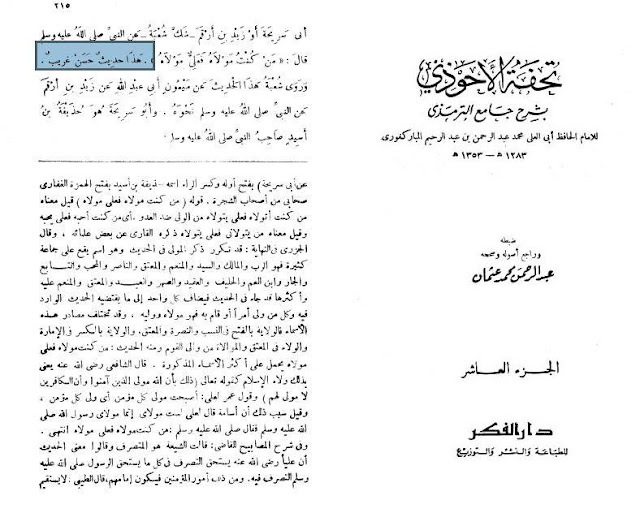 تحفة الأحوذي
بشرح جامع الترمذي
للامام الحافظ أبى العلى محمد عبد الرحمن بن عبد الرحيم المباركفورى
١٢٨٣ ه — ١٣٥٣ ه
ضبطه
وراجع أصوله وصححه
عبد الرحمن محمد عثمان
الجزء العاشر
دار الفكر
للطباعة والنشر والتوزيع
٢١٥
أبى سريحة أو زيد بن أرقم – شك شعبة – عن النبى صلى الله عليه وسلم
قال: « من كنت مولاه فعلى مولاه » . هذا حديث حسن غريب .
وروى شعبة هذا الحديث عن ميمون أبى عبد الله عن زيد بن أرقم
عن النبى صلى الله عليه وسلم نحوه . وأبو سريحة هو حذيفة بن
أسيد صاحب النبى صلى الله عليه وسلم
عن أبى سريحة ) بفتح أوله وكسر الراء اسمه حذيفة بن أسيد بفتح الهمزة الغفارى
صحابى من أصحاب الشجرة . قوله ( من كنت مولاه فعلى مولاه ) قيل معناه
من كنت أتولاه فعلى يتولاه من الولى ضد العدو ، أى من كنت أحبه فعلى يحبه
وقيل معناه من يتولانى فعلى يتولاه ذكره القارى عن بعض علمائه . وقال
الجزرى فى النهاية : قد تكرر ذكر المولى فى الحديث وهو اسم يقع على جماعة
كثيرة فهو الرب والمالك والسيد والمنعم والمعتق والناصر والمحب والتابع
والجار وابن العم والحليف والعقيد والصهر والعبد والمعتق والمنعم عليه
وأكثرها قد جاء فى الحديث فيضاف كل واحد إلى ما يقتضيه الحديث الوارد
فيه وكل من ولى أمرا أو قام به فهو مولاه ووليه ، وقد تختلف مصادر هذه
الأسماء فالولاية بالفتح فى النسب والنصرة والمعتق ، والولاية بالكسر فى الإمارة
والولاء فى المعتق والموالاة من والى القوم ومنه الحديث : من كنت مولاه فعلى
مولاه يحمل على أكثر الأسماء المذكورة . قال الشافعى رضى الله عنه يعنى
بذلك ولاء الإسلام كقوله تعالى ( ذلك بأن الله مولى الذين آمنوا وأن الكافرين
لا مولى لهم ) وقول عمر لعلى : أصبحت مولى كل مؤمن أى ولى كل مؤمن ،
وقيل سبب ذلك أن أسامة قال لعلى لست مولاى إنما مولاى رسول الله صلى
الله عليه وسلم فقال صلى الله عليه وسلم : من كنت مولاه فعلى مولاه انتهى .
وفى شرح المصابيح للقاضى : قالت الشيعة هو المتصرف وقالوا معنى الحديث
أن علياً رضى الله عنه يستحق التصرف فى كل ما يستحق الرسول صلى الله عليه
وسلم التصرف فيه . ومن ذلك أمور المؤمنين فيكون إمامهم ، قال الطيبى : لا يستقيم